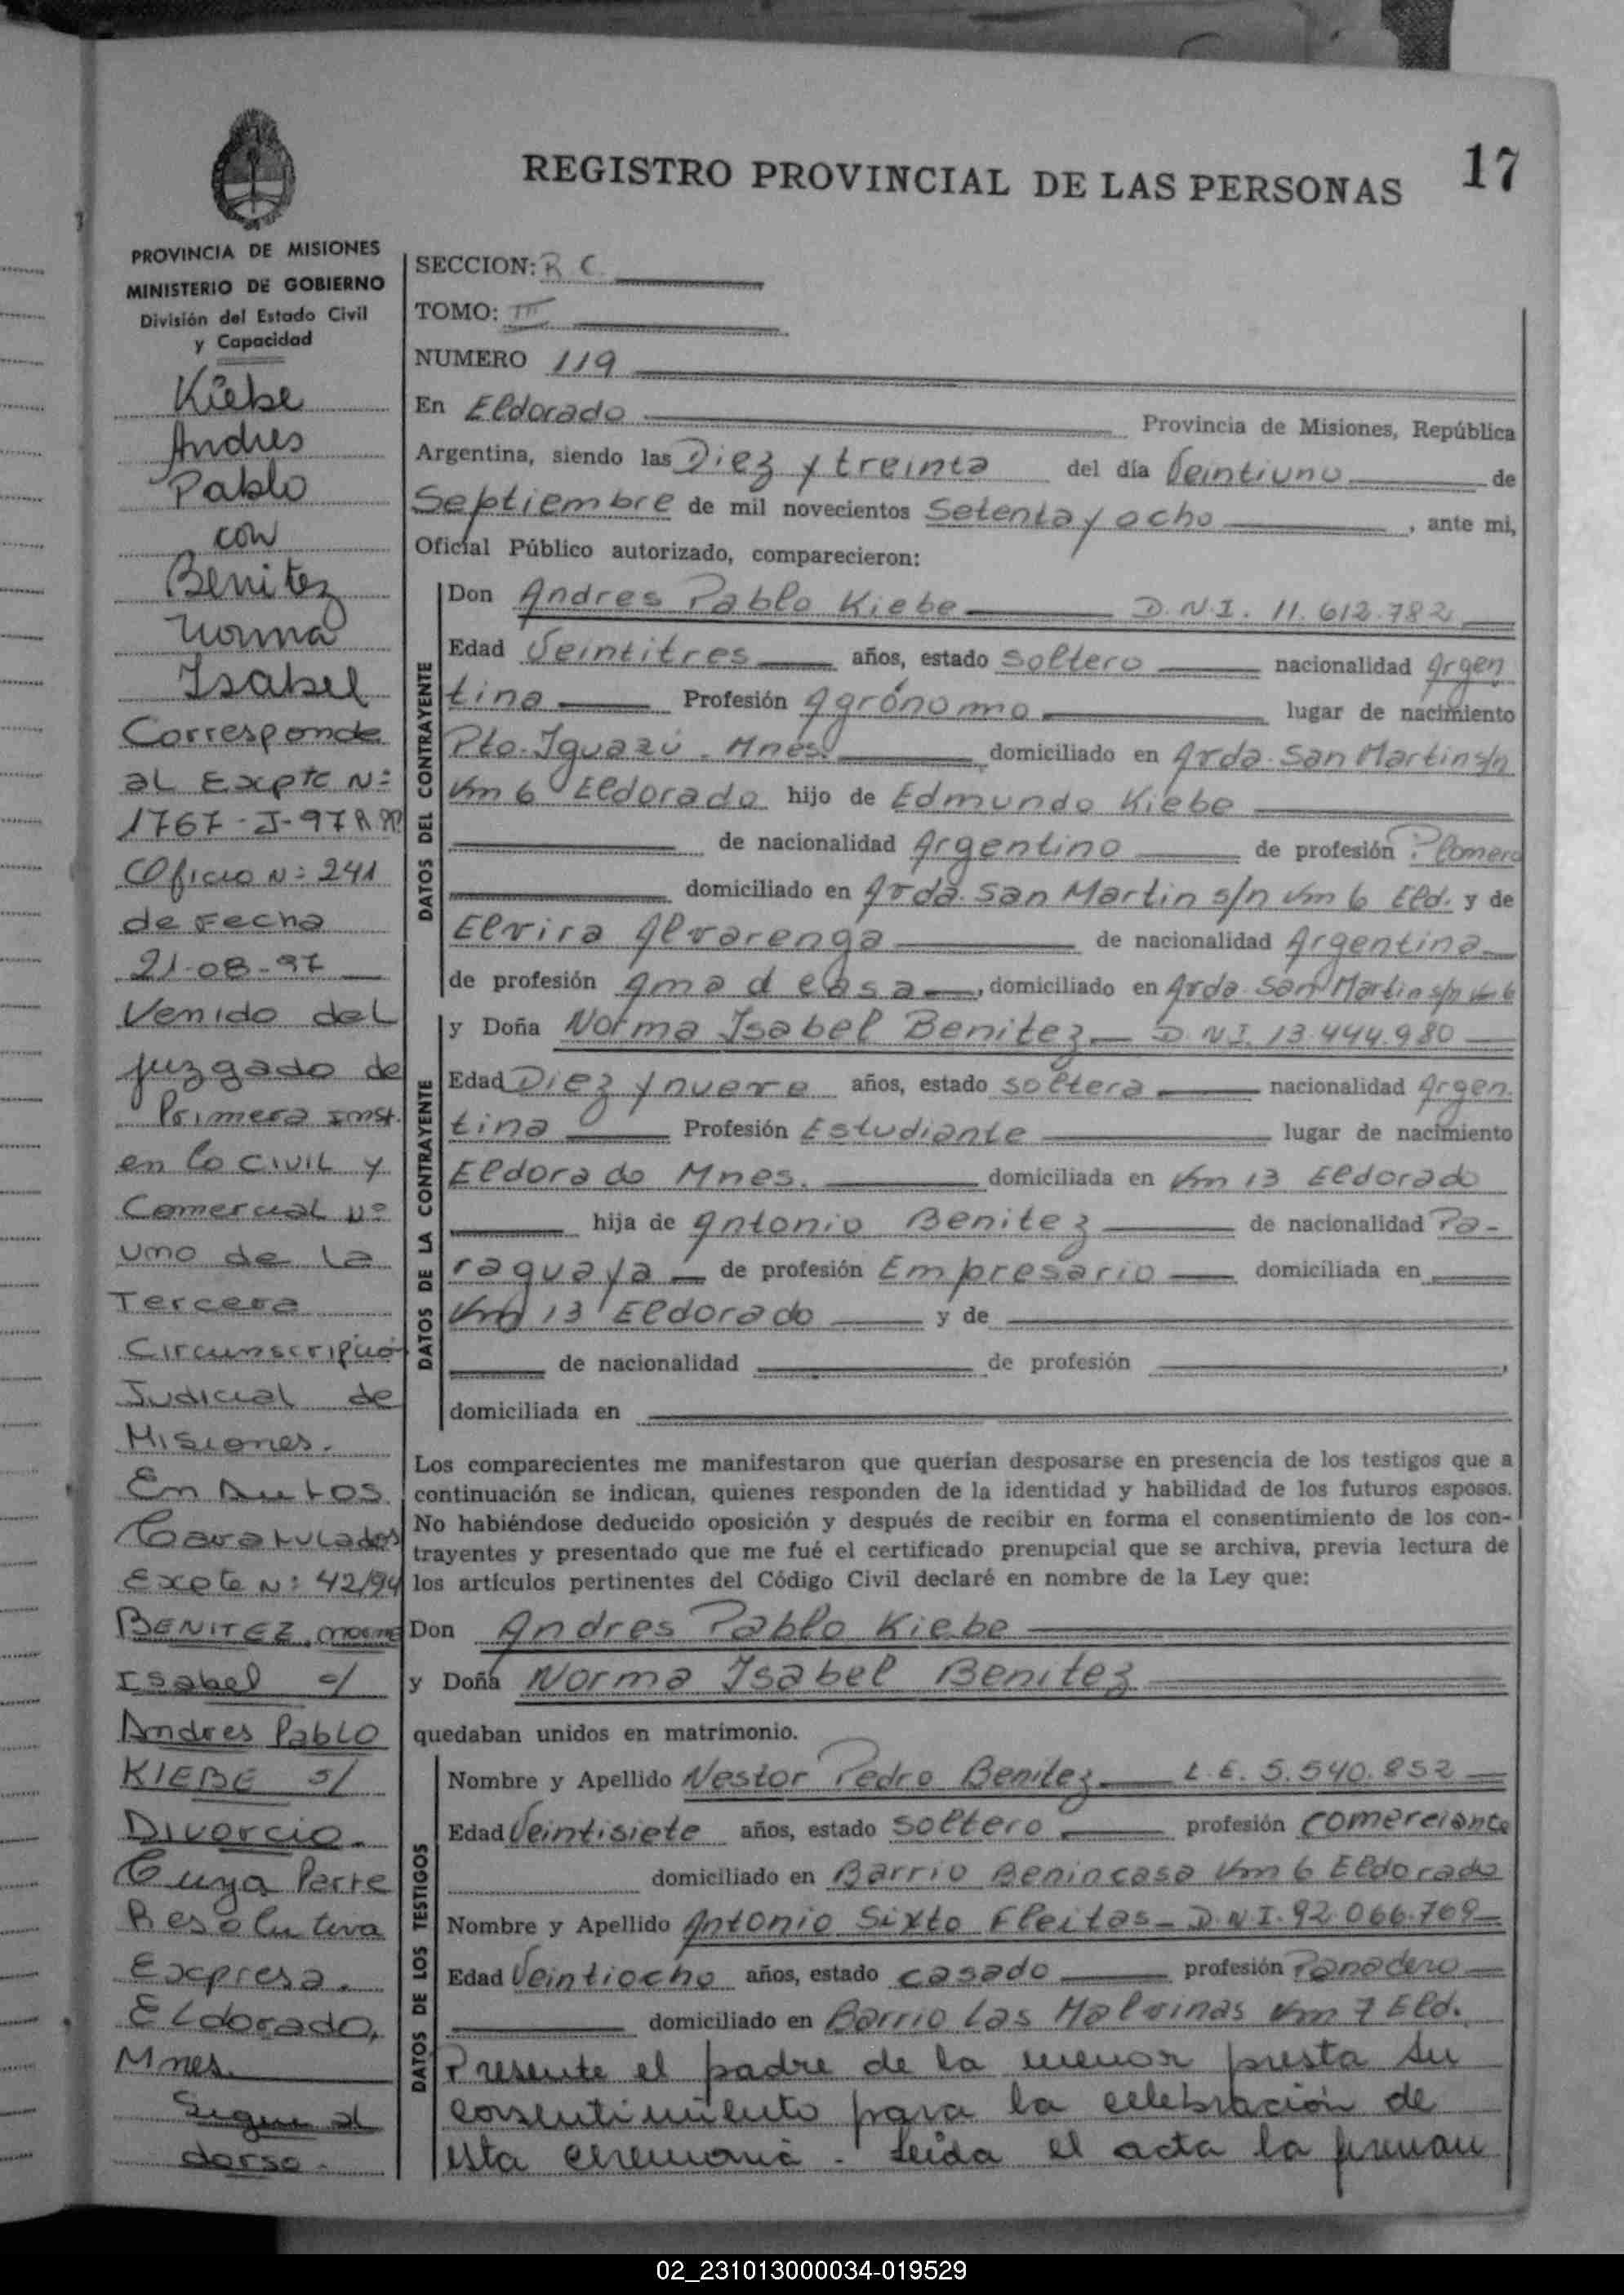 REGISTRO PROVINCIAL DE LAS PERSONAS
17
PROVINCIA DE MISIONES
MINISTERIO DE GOBIERNO
División del Estado Civil
y Capacidad
Kiebe
Andres
Pablo
con
Benitez
Norma
Isabel
Corresponde
al Expte Nº
1767-J-97
Oficio Nº 241
de Fecha
21-08-97
Venido del
juzgado de
Primera inst.
en lo CIVIL y
Comercial Nº
uno de La
Tercera
Circunscripción
Judicial de
Misiones.
En Autos
Caratulados
Expte Nº 42/94
BENITEZ, Norma
Isabel c/
Andres Pablo
KIEBE s/
Divorcio.
Cuya Parte
Resolutiva
Expresa.
Eldorado,
Mnes.
Sigue al
dorso.
SECCION: R C.
TOMO: III
NUMERO 119
En Eldorado Provincia de Misiones, República
Argentina, siendo las Diez y treinta del día Veintiuno de
Septiembre de mil novecientos Setenta y ocho, ante mi,
Oficial Público autorizado, comparecieron:
DATOS DEL CONTRAYENTE
Don Andres Pablo Kiebe D.N.I. 11.612.782
Edad Veintitres años, estado soltero nacionalidad Argen
tina Profesión Agrónomo lugar de nacimiento
Pto. Iguazú - Mnes. domiciliado en Avda. San Martin s/n
Km 6 Eldorado hijo de Edmundo Kiebe
de nacionalidad Argentino de profesión Plomero
domiciliado en Avda. San Martin s/n Km 6 Eld. y de
Elvira Alvarenga de nacionalidad Argentina
de profesión Ama d casa, domiciliado en Avda. San Martin s/n Km 6
DATOS DE LA CONTRAYENTE
y Doña Norma Isabel Benitez D.N.I. 13.444.980
Edad Diez y nueve años, estado soltera nacionalidad Argen.
tina Profesión Estudiante lugar de nacimiento
Eldorado Mnes. domiciliada en Km 13 Eldorado
hija de Antonio Benitez de nacionalidad Pa-
raguaya de profesión Empresario domiciliada en
Km 13 Eldorado y de
de nacionalidad de profesión ,
domiciliada en
Los comparecientes me manifestaron que querían desposarse en presencia de los testigos que a
continuación se indican, quienes responden de la identidad y habilidad de los futuros esposos.
No habiéndose deducido oposición y después de recibir en forma el consentimiento de los con-
trayentes y presentado que me fué el certificado prenupcial que se archiva, previa lectura de
los artículos pertinentes del Código Civil declaré en nombre de la Ley que:
Don Andres Pablo Kiebe
y Doña Norma Isabel Benitez
quedaban unidos en matrimonio.
DATOS DE LOS TESTIGOS
Nombre y Apellido Nestor Pedro Benitez L.E. 5.540.852
Edad Veintisiete años, estado soltero profesión comerciante
domiciliado en Barrio Benincasa Km 6 Eldorado
Nombre y Apellido Antonio Sixto Fleitas - D.N.I. 92.066.769
Edad Veintiocho años, estado casado profesión Panadero
domiciliado en Barrio Las Malvinas Km 7 Eld.
Presente el padre de la menor presta su
consentimiento para la celebración de
esta ceremonia. Leida el acta la firman
02_231013000034-019529